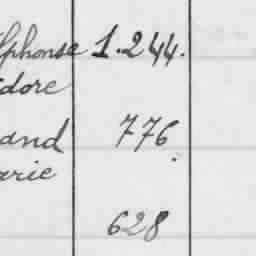 lphonse 1.244.
dore
and 776.
arie
628